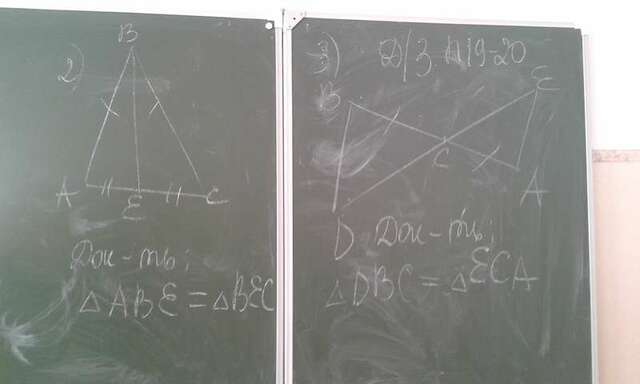 2)
B
A
E
C
Док-ть:
△ABE = △BEC
3)
Д/З п19-20
B
E
C
A
D
Док-ть:
△DBC = △ECA